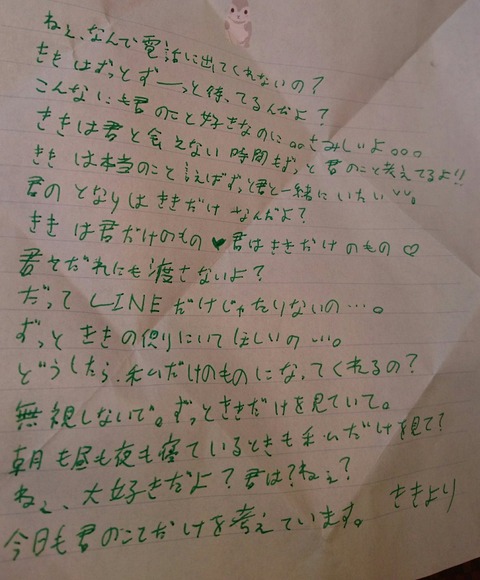 ねぇ、なんで電話に出てくれないの?
ききはずっとずーっと待ってるんだよ?
こんなにも君のこと好きなのに。。さみしいよ。。。
ききは君と会えない時間もずっと君のこと考えてるよ!!
ききは本当のこと言えばずっと君と一緒にいたい
君のとなりはききだけなんだよ?
ききは君だけのもの♥君はききだけのもの♡
君をだれにも渡さないよ?
だってLINEだけじゃたりないの…。
ずっとききの側りにいてほしいの…。
どうしたら、私だけのものになってくれるの?
無視しないで。ずっとききだけを見ていて。
朝も昼も夜も寝ているときも私だけを見て?
ねぇ、大好きだよ?君は?ねぇ?
今日も君のことだけを考えています。ききより